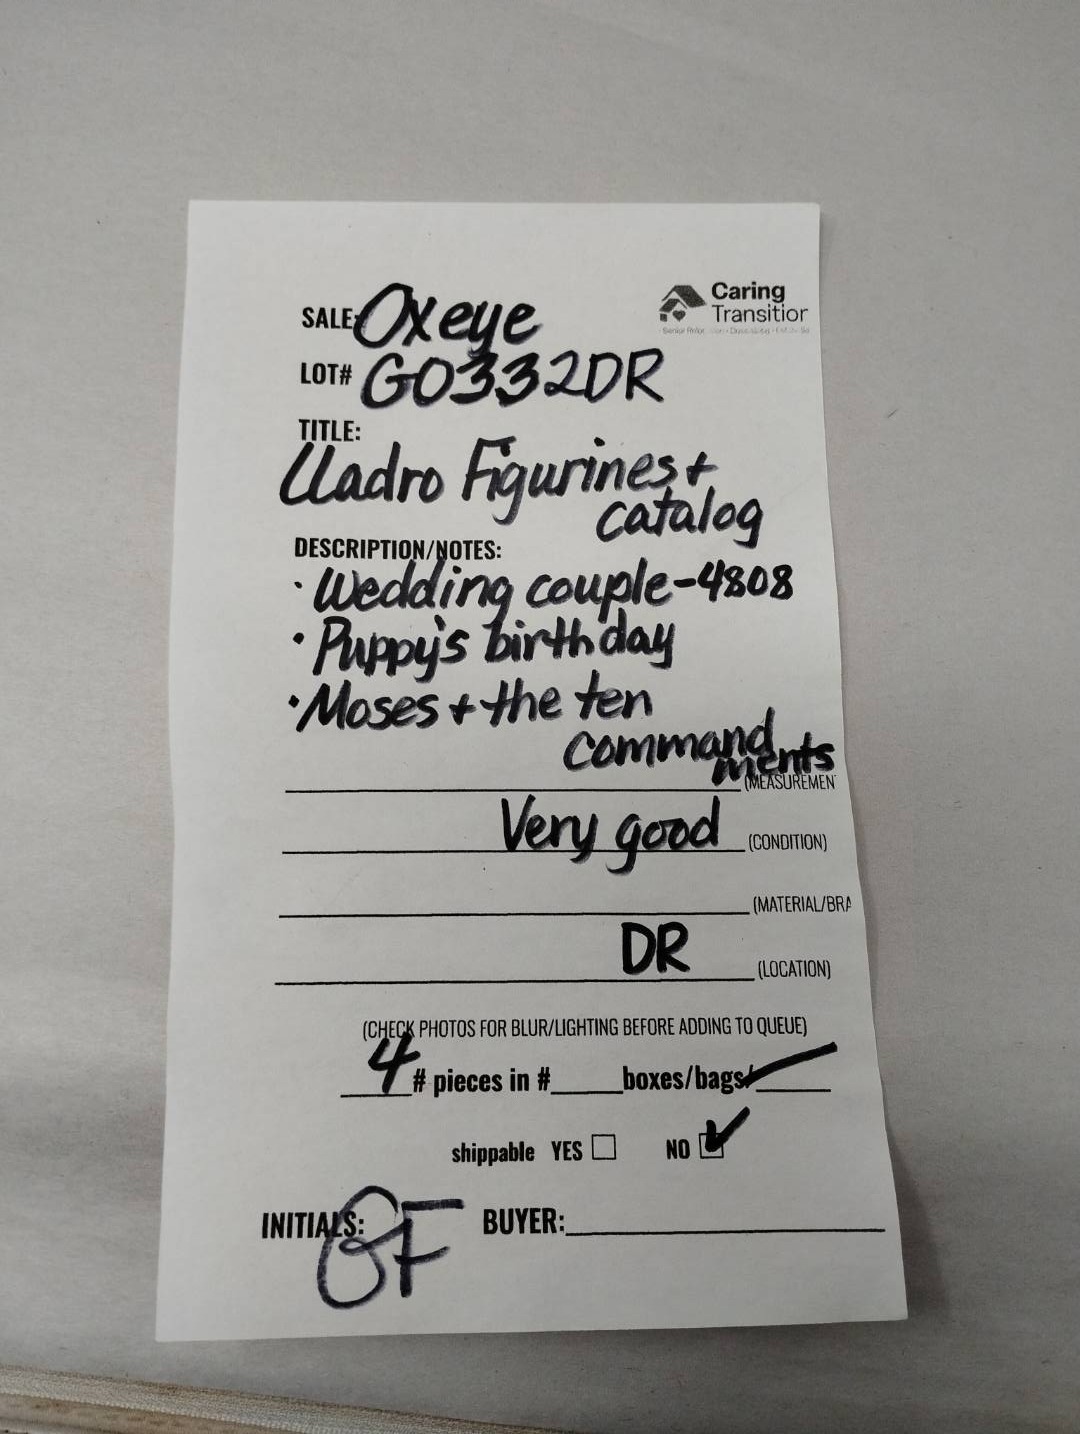 Caring
Transition
SALE: Oxeye
LOT# G0332DR
TITLE:
Lladro Figurines +
catalog
DESCRIPTION/NOTES:
· Wedding couple-4808
· Puppy's birthday
· Moses + the ten
command
ments
(MEASUREMEN
Very good (CONDITION)
(MATERIAL/BRA
DR (LOCATION)
(CHECK PHOTOS FOR BLUR/LIGHTING BEFORE ADDING TO QUEUE)
4 # pieces in # boxes/bags/
shippable YES ☐ NO ☑
INITIALS: GF BUYER: